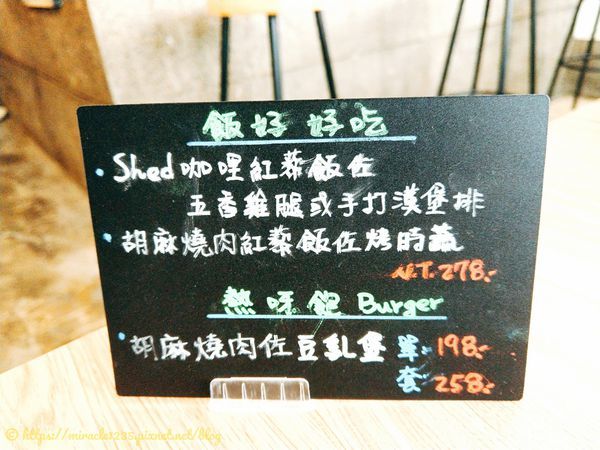 飯好好吃
•Shed咖哩紅藜飯佐
五香雞腿或手打漢堡排
•胡麻燒肉紅藜飯佐烤時蔬
N.T.278.-
熱呀飽 Burger
•胡麻燒肉佐豆乳堡 單 198.-
套 258.-
© https://miracle1235.pixnet.net/blog